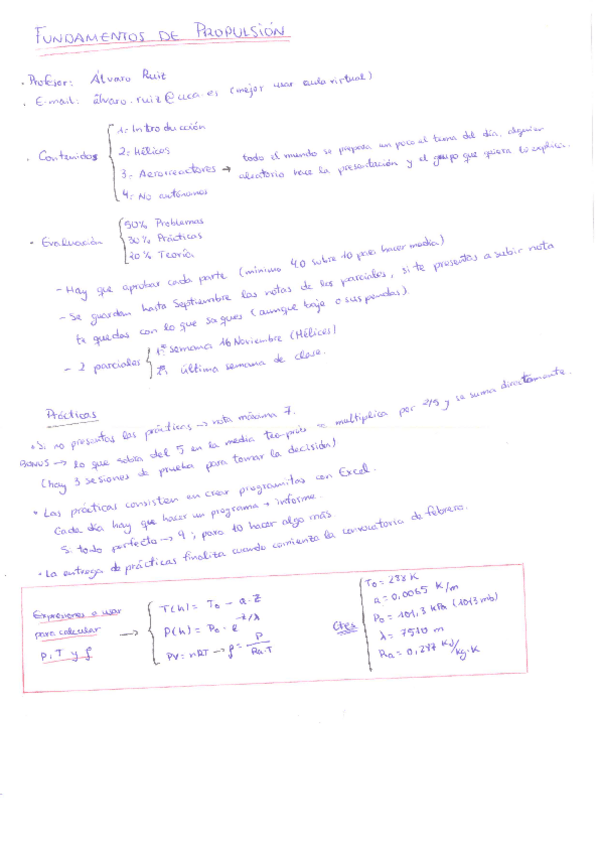 FUNDAMENTOS DE PROPULSIÓN
• Profesor: Álvaro Ruiz
• E-mail: álvaro.ruiz@uca.es (mejor usar aula virtual)
• Contenidos
1: Introducción
2: Hélices
3: Aerorreactores → todo el mundo se prepara un poco el tema del día, alguien
aleatorio hace la presentación y el grupo que quiera lo explica.
4: No autónomos
• Evaluación
50% Problemas
30% Prácticas
20% Teoría
- Hay que aprobar cada parte (mínimo 4.0 sobre 10 para hacer media)
- Se guardan hasta Septiembre las notas de los parciales, si te presentas a subir nota
te quedas con lo que saques (aunque baje o suspendas).
- 2 parciales
1º: semana 16 Noviembre (Hélices)
2º: última semana de clase.
Prácticas
• Si no presentas las prácticas → nota máxima 7.
BONUS → lo que sobra del 5 en la media multiplica por 2/5 y se suma directamente.
(hay 3 sesiones de prueba para tomar la decisión)
• Las prácticas consisten en crear programitas con Excel.
Cada día hay que hacer un programa + informe.
Si todo perfecto → 9; para 10 hacer algo más
• La entrega de prácticas finaliza cuando comienza la convocatoria de febrero.
Expresiones a usar
para calcular
P, T y ρ
→
T(h) = T₀ - a·z
P(h) = P₀·e^(-z/λ)
PV = nRT → ρ = P/(Ra·T)
T₀ = 288 K
a = 0,0065 K/m
P₀ = 101,3 kPa (1013 mb)
λ = 7510 m
Ra = 0,287 kJ/kg·K